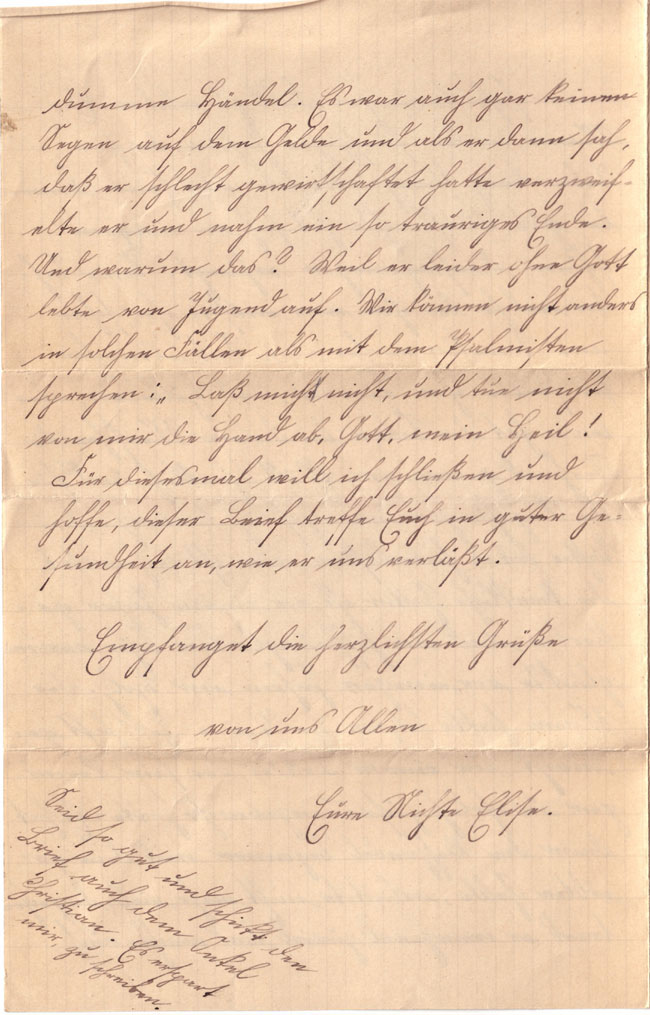 dumme Händel. Es war auch gar keinen
Segen auf dem Gelde und als er dann sah,
daß er schlecht gewirtschaftet hatte verzweif-
elte er und nahm ein so trauriges Ende.
Und warum das? Weil er leider ohne Gott
lebte von Jugend auf. Wir können nicht anders
in solchen Fällen als mit dem Psalmisten
sprechen: „Laß mich nicht, und tue nicht
von mir die Hand ab, Gott, mein Heil!
Für diesesmal will ich schließen und
hoffe, dieser Brief treffe Euch in guter Ge-
sundheit an, wie er uns verläßt.
Empfanget die herzlichsten Grüße
von uns Allen
Eure Nichte Elise.
Seid so gut und schickt den
Brief auch dem Onkel
Christian. Es erspart
mir zu schreiben.